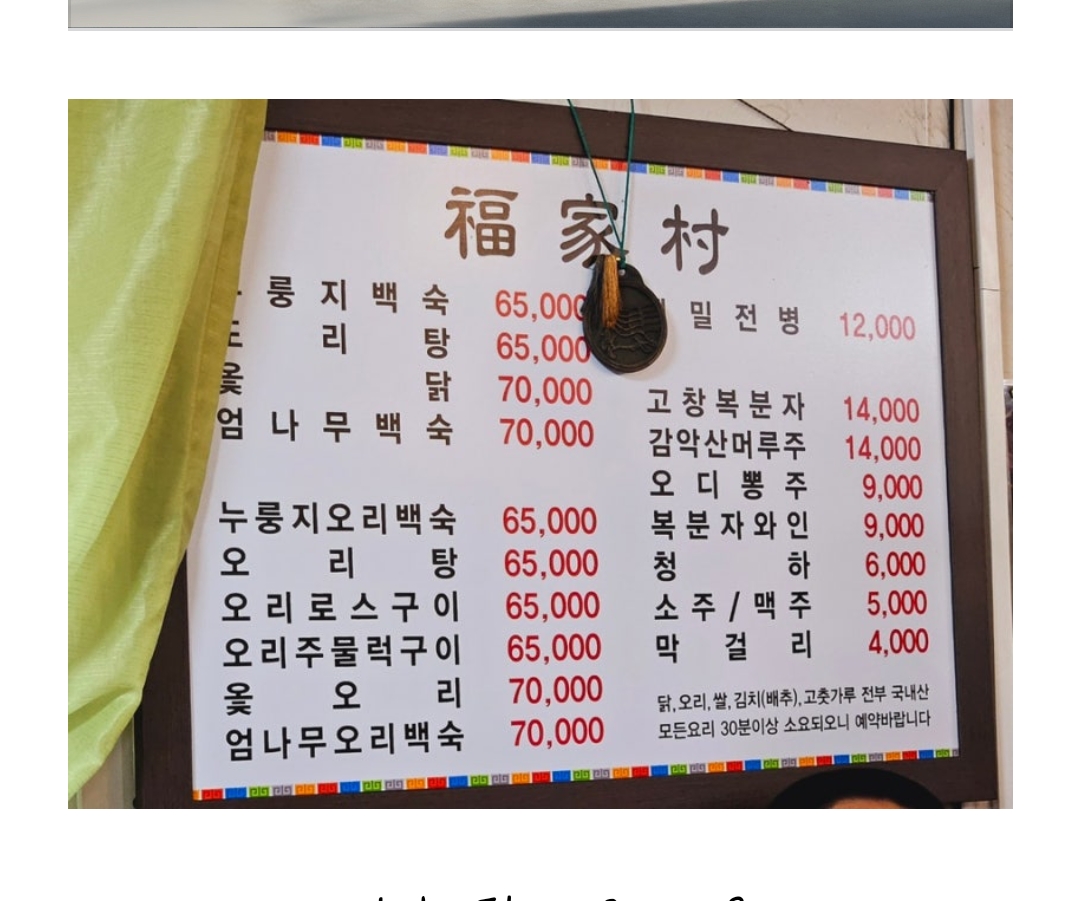 福家村
룽지백숙 65,000
리탕 65,000
옻닭 70,000
엄나무백숙 70,000
누룽지오리백숙 65,000
오리탕 65,000
오리로스구이 65,000
오리주물럭구이 65,000
옻오리 70,000
엄나무오리백숙 70,000
밀전병 12,000
고창복분자 14,000
감악산머루주 14,000
오디뽕주 9,000
복분자와인 9,000
청하 6,000
소주/맥주 5,000
막걸리 4,000
닭,오리,쌀,김치(배추),고춧가루 전부 국내산
모든요리 30분이상 소요되오니 예약바랍니다